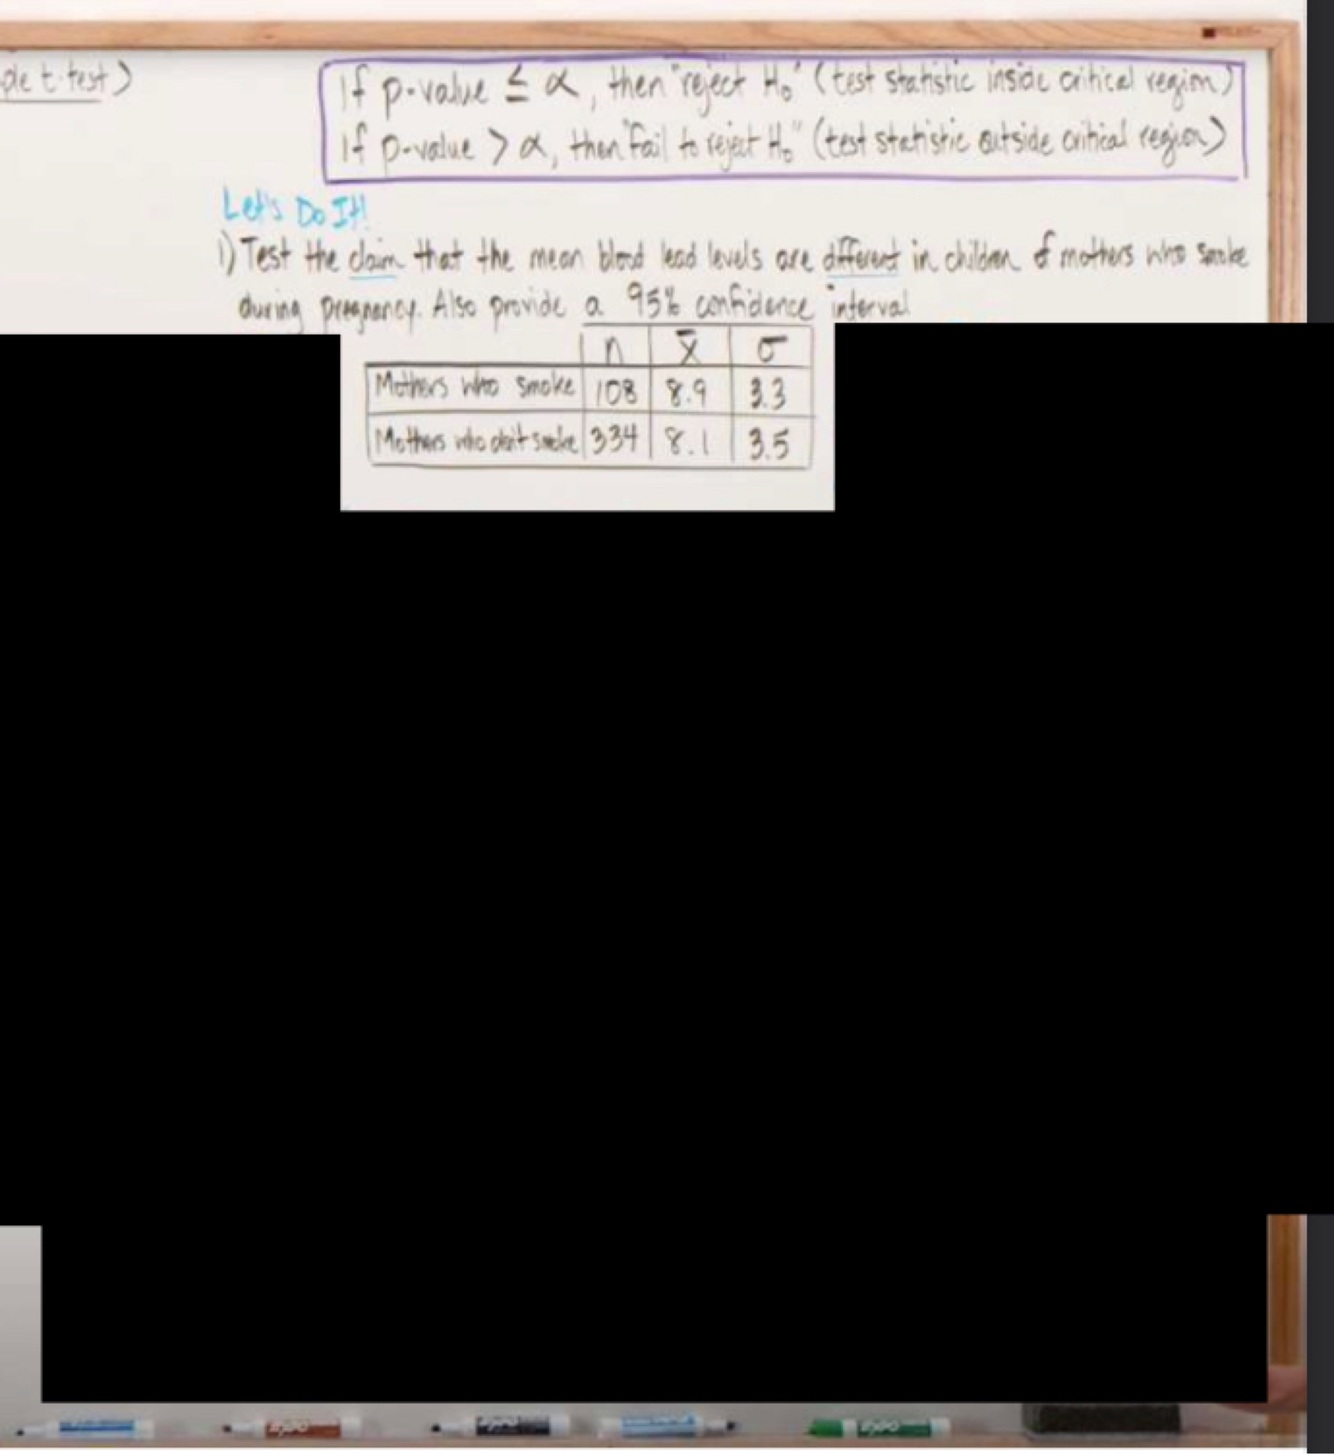 ple t-test)
If p-value ≤ α, then "reject H₀" (test statistic inside critical region)
If p-value > α, then "fail to reject H₀" (test statistic outside critical region)
Let's Do It!
1) Test the claim that the mean blood lead levels are different in children of mothers who smoke
during pregnancy. Also provide a 95% confidence interval
n x̄ σ
Mothers who smoke 108 8.9 3.3
Mothers who don't smoke 334 8.1 3.5
EXPO
EXPO
EXPO